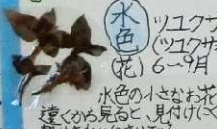 水色
ツユクサ
(ツユクサ
(花) 6〜9月
水色の小さなお花
遠くから見ると、見付けに